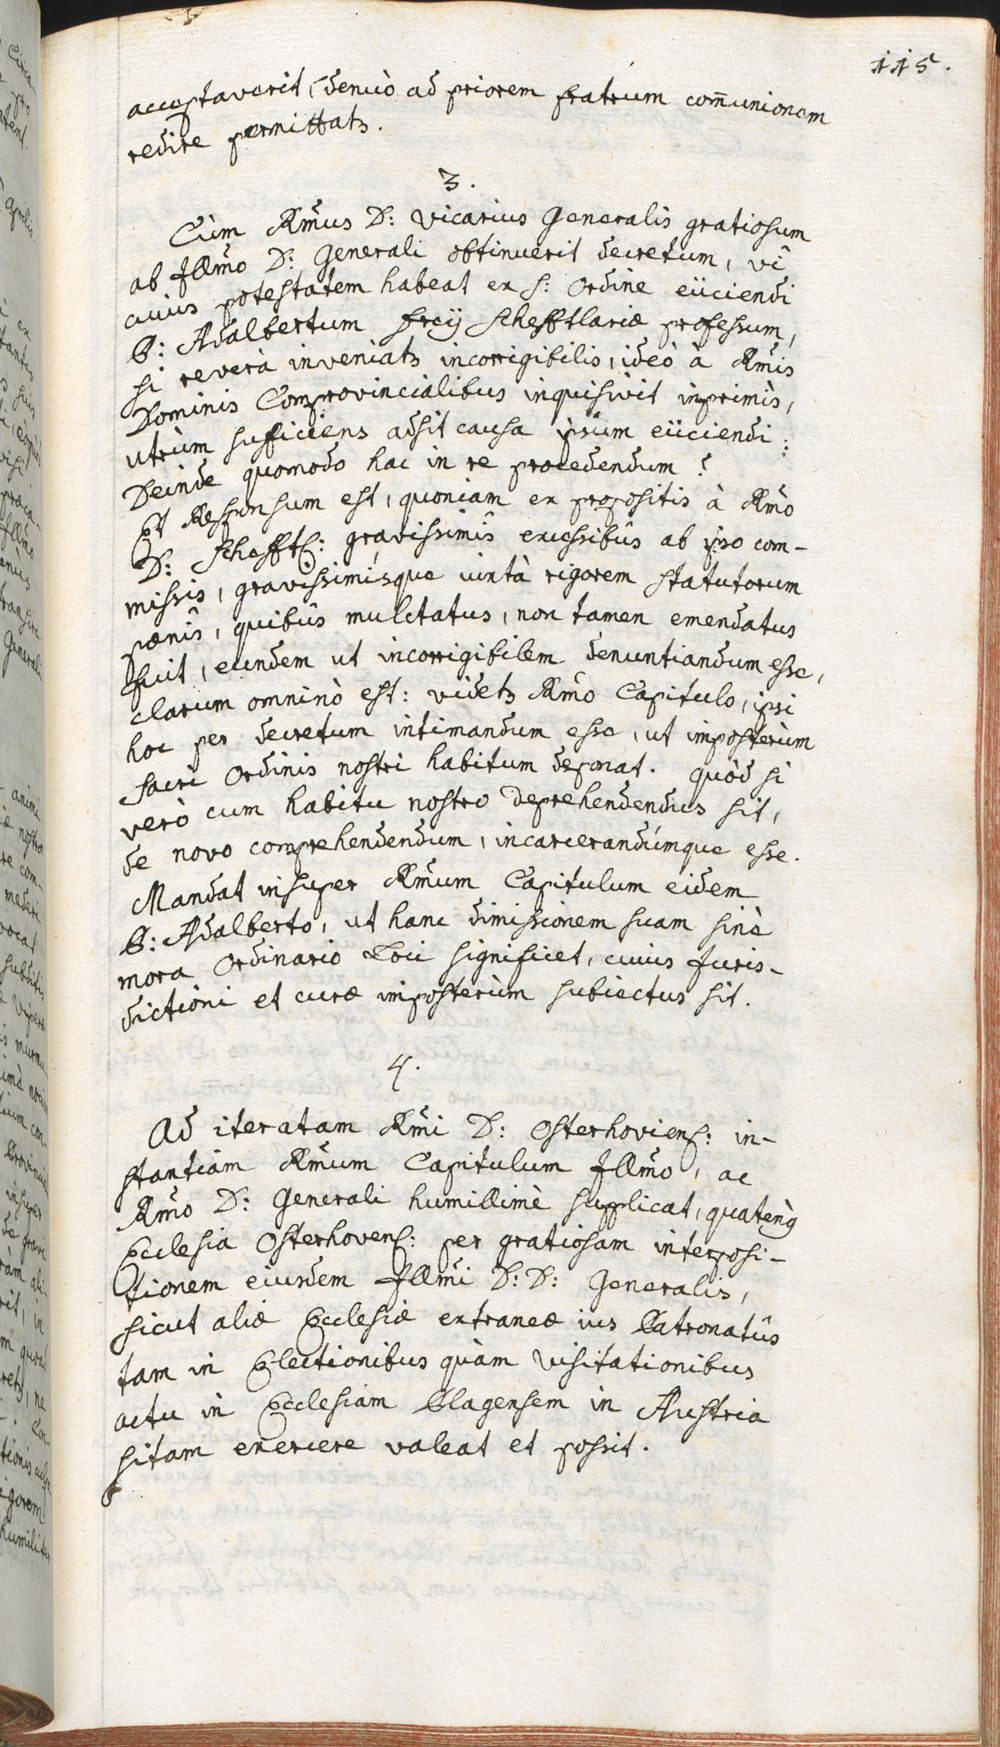 115.
acceptaverit, denuò ad priorem fratrum com̃unionem
redire permittatr.
3.
Cùm Rm̃us D: Vicarius Generalis gratiosum
ab Illm̃o D: Generali obtinuerit decretum, vi
cuius potestatem habeat ex S: Ordine eiiciendi
B: Adalbertum Scheftlariæ professum,
si reverà inveniatr incorrigibilis, ideò à Rm̃is
Dominis Comprovincialibus inquisivit inprimìs,
utrùm sufficiens adsit causa ipsum eiiciendi:
Deinde quomodo hac in re procedendum?
Et Responsum est, quoniam ex propositis à Rm̃o
D: Schefftl: gravissimîs excessibûs ab ipso com-
missis, gravissimísque iuxtà rigorem statutorum
pœnîs, quibûs mulctatus, non tamen emendatus
fuit, eundem ut incorrigibilem denuntiandum esse,
clarum omninò est: videtr Rm̃o Capitulo, ipsi
hoc per decretum intimandum esse, ut imposterùm
sacri Ordinis nostri habitum deponat. quòd si
verò cum habitu nostro deprehendendus sit,
de novo comprehendendum, incarcerandúmque esse.
Mandat insuper Rm̃um Capitulum eidem
B: Adalberto, ut hanc dimissionem suam sinè
mora Ordinario Loci significet, cuius Juris-
dictioni et curæ imposterùm subiectus sit.
4.
Ad iteratam Rm̃i D: Osterhoviens: in-
stantiam Rm̃um Capitulum Illm̃o, ac
Rm̃o D: Generali humillimè supplicat, quatenq
Ecclesia Osterhovens: per gratiosam interposi-
tionem eiusdem Illm̃i D: D: Generalis,
sicut aliæ Ecclesiæ extraneæ ius Patronatûs
tam in Electionibus quàm Visitationibus
actu in Ecclesiam Plagensem in Austria
sitam exercere valeat et possit.